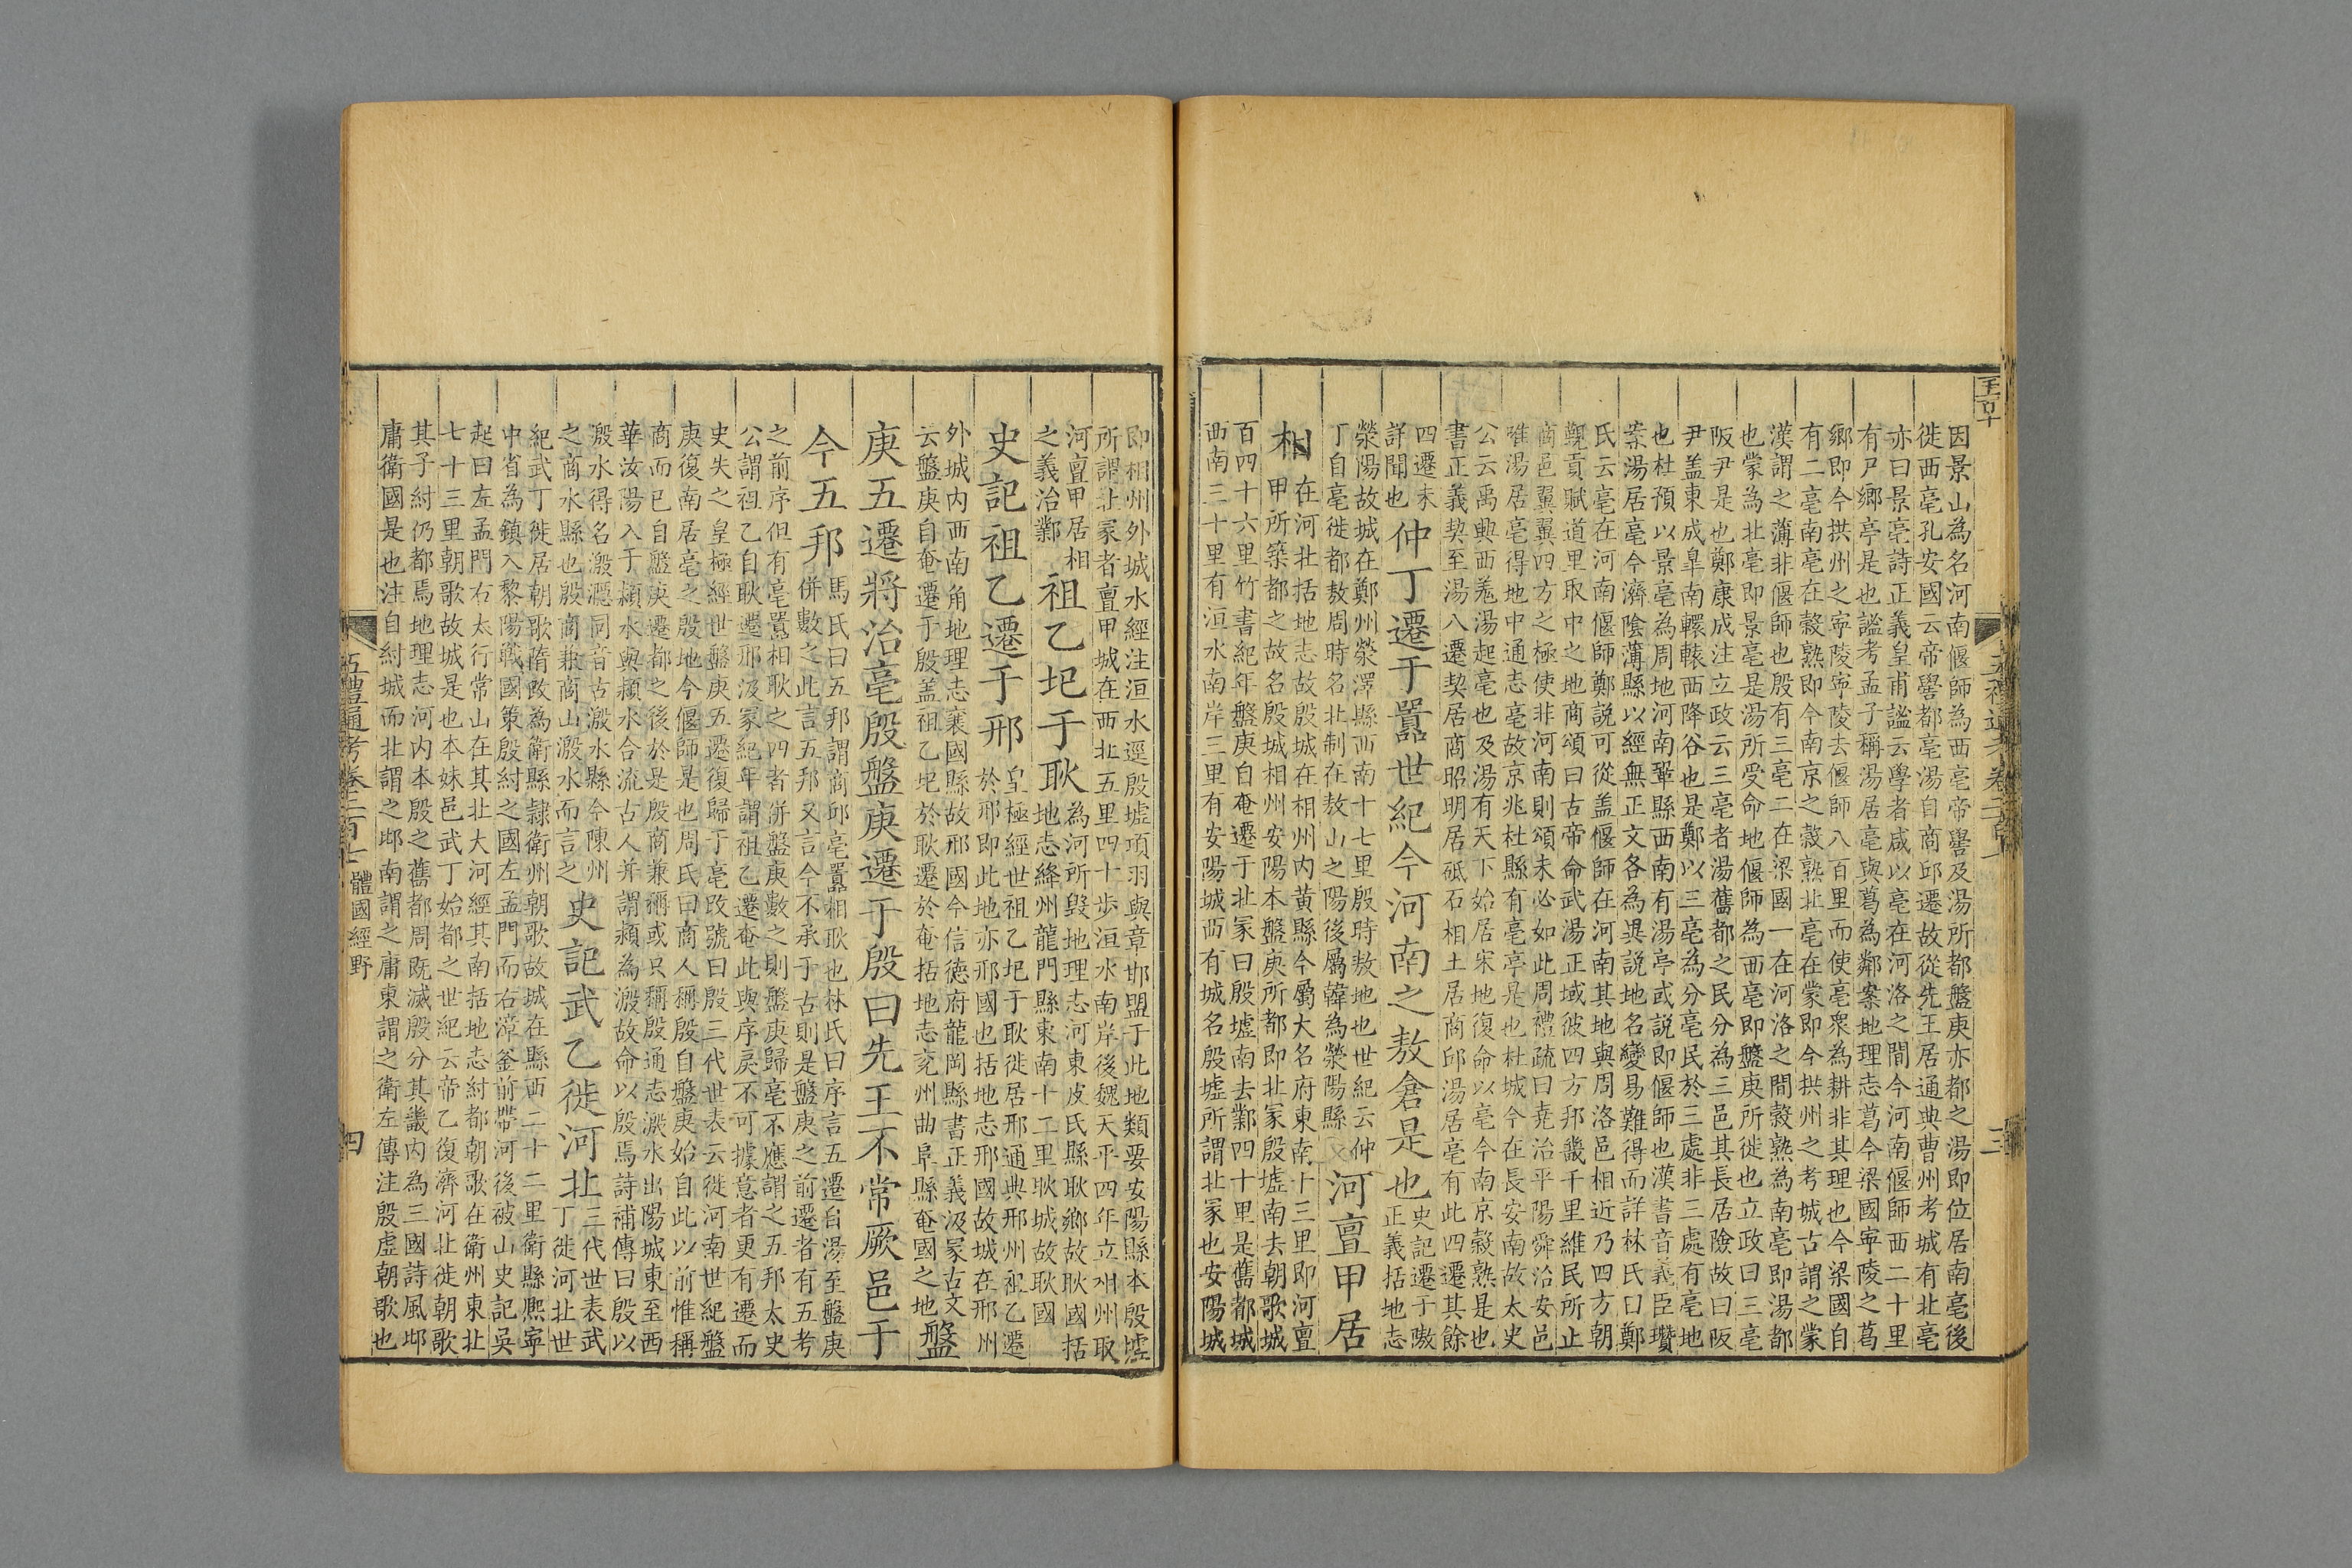 因景山為名河南偃師為西亳帝嚳及湯所都盤庚亦都之湯即位居南亳後
徙西亳孔安國云帝嚳都亳湯自商邱遷故從先王居通典曹州考城有北亳
亦曰景亳詩正義皇甫謐云學者咸以亳在河洛之間今河南偃師西二十里
有尸鄉亭是也謐考孟子稱湯居亳與葛為鄰案地理志葛今梁國寧陵之葛
鄉即今拱州之寧陵寧陵去偃師八百里而使亳衆為耕非其理也今梁國自
有二亳南亳在穀熟即今南京之穀熟北亳在蒙即今拱州之考城古謂之蒙
漢謂之薄非偃師也殷有三亳二在梁國一在河洛之間穀熟為南亳即湯都
也蒙為北亳即景亳是湯所受命地偃師為西亳即盤庚所徙也立政曰三亳
阪尹是也鄭康成注立政云三亳者湯舊都之民分為三邑其長居險故曰阪
尹蓋東成皐南轘轅西降谷也是鄭以三亳為分亳民於三處非三處有亳地
也杜預以景亳為周地河南鞏縣西南有湯亭或說即偃師也漢書音義臣瓚
案湯居亳今濟陰薄縣以經無正文各為異說地名變易難得而詳林氏曰鄭
氏云亳在河南偃師鄭說可從蓋偃師在河南其地與周洛邑相近乃四方朝
覲貢賦道里取中之地商頌曰古帝命武湯正域彼四方邦畿千里維民所止
商邑翼翼四方之極使非河南則頌未必如此周禮疏曰堯治平陽舜治安邑
唯湯居亳得地中通志亳故京兆杜縣有亳亭是也杜城今在長安南故太史
公云禹興西羗湯起亳也及湯有天下始居宋地復命以亳今南京穀熟是也
書正義契至湯八遷契居商昭明居砥石相土居商邱湯居亳有此四遷其餘
四遷未
詳聞也
仲丁遷于囂世紀今河南之敖倉是也
史記遷于隞
正義括地志
滎陽故城在鄭州滎澤縣西南十七里殷時敖地也世紀云仲
丁自亳徙都敖周時名北制在敖山之陽後屬韓為滎陽縣
河亶甲居
相
在河北括地志故殷城在相州内黃縣今屬大名府東南十三里即河亶
甲所築都之故名殷城相州安陽本盤庚所都即北冢殷墟南去朝歌城
百四十六里竹書紀年盤庚自奄遷于北冢曰殷墟南去鄴四十里是舊都城
西南三十里有洹水南岸三里有安陽城西有城名殷墟所謂北冢也安陽城
即相州外城水經注洹水逕殷墟項羽與章邯盟于此地類要安陽縣本殷墟
所謂北冢者亶甲城在西北五里四十步洹水南岸後魏天平四年立相州取
河亶甲居相
之義治鄴
祖乙圯于耿
為河所毀地理志河東皮氏縣耿鄉故耿國括
地志絳州龍門縣東南十二里耿城故耿國
史記祖乙遷于邢
皇極經世祖乙圯于耿徙居邢通典邢州祖乙遷
於邢即此地亦邢國也括地志邢國故城在邢州
外城内西南角地理志襄國縣故邢國今信德府龍岡縣書正義汲冢古文
云盤庚自奄遷于殷蓋祖乙圯於耿遷於奄括地志兖州曲阜縣奄國之地
盤
庚五遷將治亳殷盤庚遷于殷曰先王不常厥邑于
今五邦
馬氏曰五邦謂商邱亳囂相耿也林氏曰序言五遷自湯至盤庚
併數之此言五邦又言今不承于古則是盤庚之前遷者有五考
之前序但有亳囂相耿之四者併盤庚數之則盤庚歸亳不應謂之五邦太史
公謂祖乙自耿遷邢汲冢紀年謂祖乙遷奄此與序戾不可據意者更有遷而
史失之皇極經世盤庚五遷復歸于亳改號曰殷三代世表云徙河南世紀盤
庚復南居亳之殷地今偃師是也周氏曰商人稱殷自盤庚始自此以前惟稱
商而已自盤庚遷都之後於是殷商兼稱或只稱殷通志溵水出陽城東至西
華汝陽入于潁水與潁水合流古人并謂潁為溵故命以殷焉詩補傳曰殷以
溵水得名溵㶏同音古溵水縣今陳州
之商水縣也殷商兼商山溵水而言之
史記武乙徙河北
三代世表武
丁徙河北世
紀武丁徙居朝歌隋改為衛縣隸衛州朝歌故城在縣西二十二里衛縣熙寧
中省為鎮入黎陽戰國策殷紂之國左孟門而右漳釜前帶河後被山史記吳
起曰左孟門右太行常山在其北大河經其南括地志紂都朝歌在衛州東北
七十三里朝歌故城是也本妹邑武丁始都之世紀云帝乙復濟河北徙朝歌
其子紂仍都焉地理志河内本殷之舊都周既滅殷分其畿内為三國詩風邶
庸衛國是也注自紂城而北謂之邶南謂之庸東謂之衛左傳注殷虛朝歌也
五禮通考卷二百十 體國經野 四